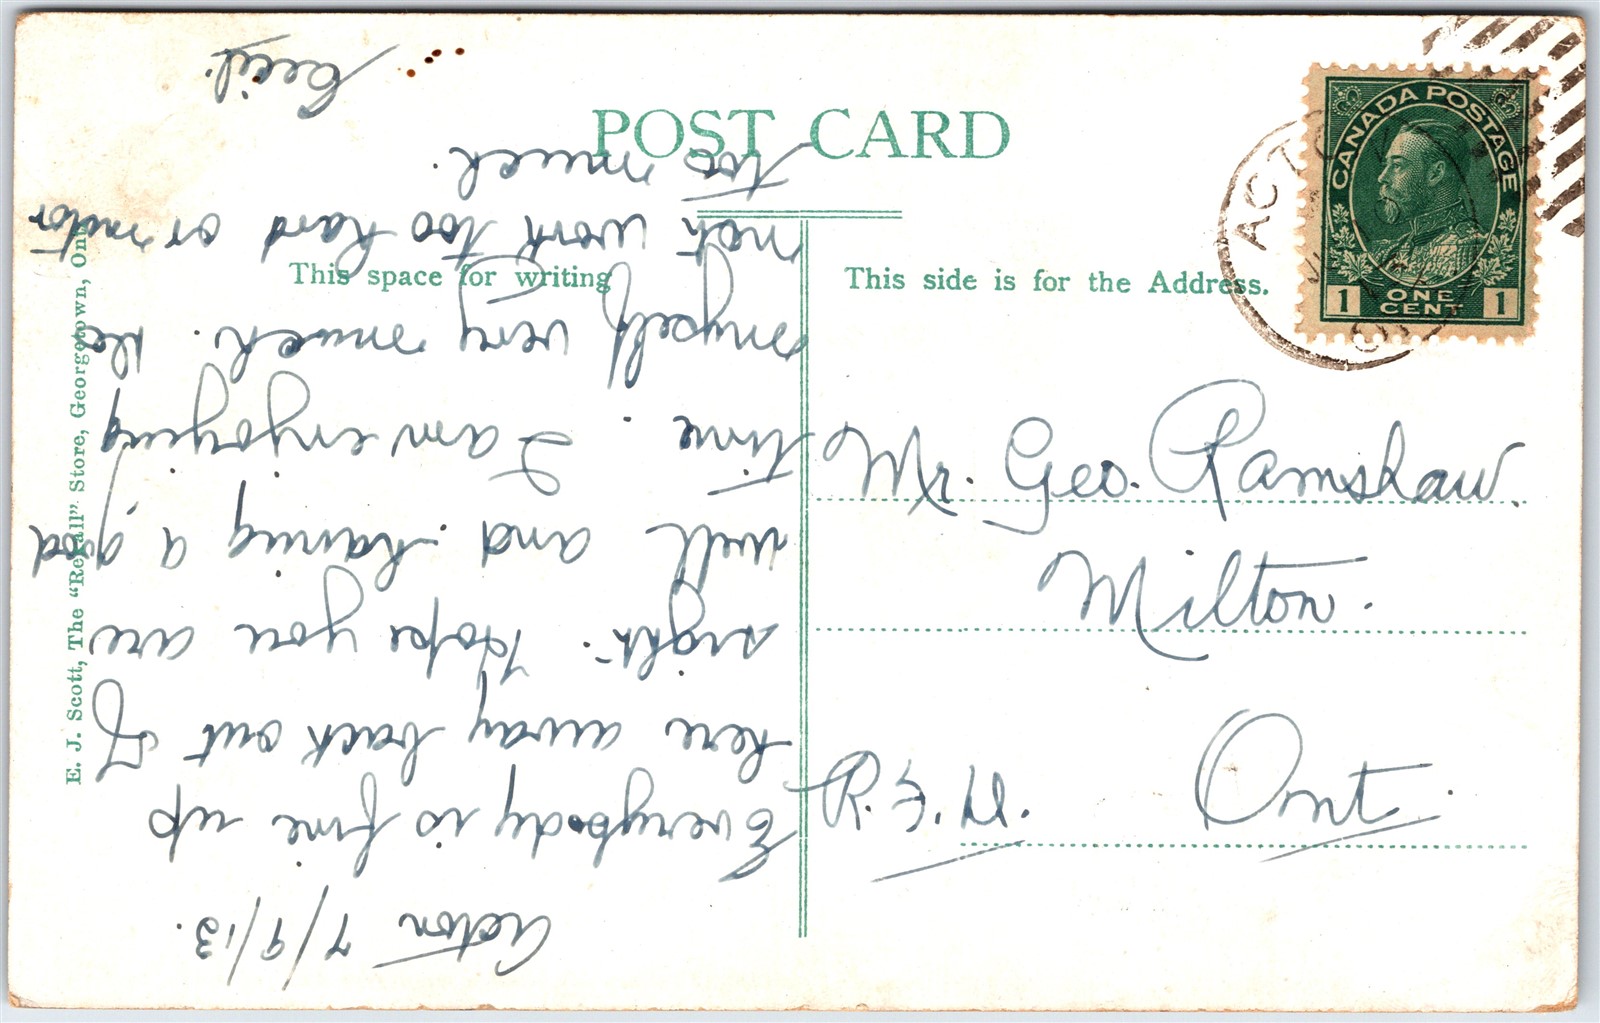 POST CARD
This space for writing
This side is for the Address.
E. J. Scott, The "Rexall" Store, Georgetown, Ont.
CANADA POSTAGE
1 ONE CENT 1
ACTON
ONT
Mr. Geo. Ramshaw.
Milton.
Ont.
Acton 7/9/13.
Everybody is fine up
here away back out of
sight. Hope you are
well and having a good
time. I am enjoying
myself very much. Do
not work too hard or motor
too much.
Cecil.